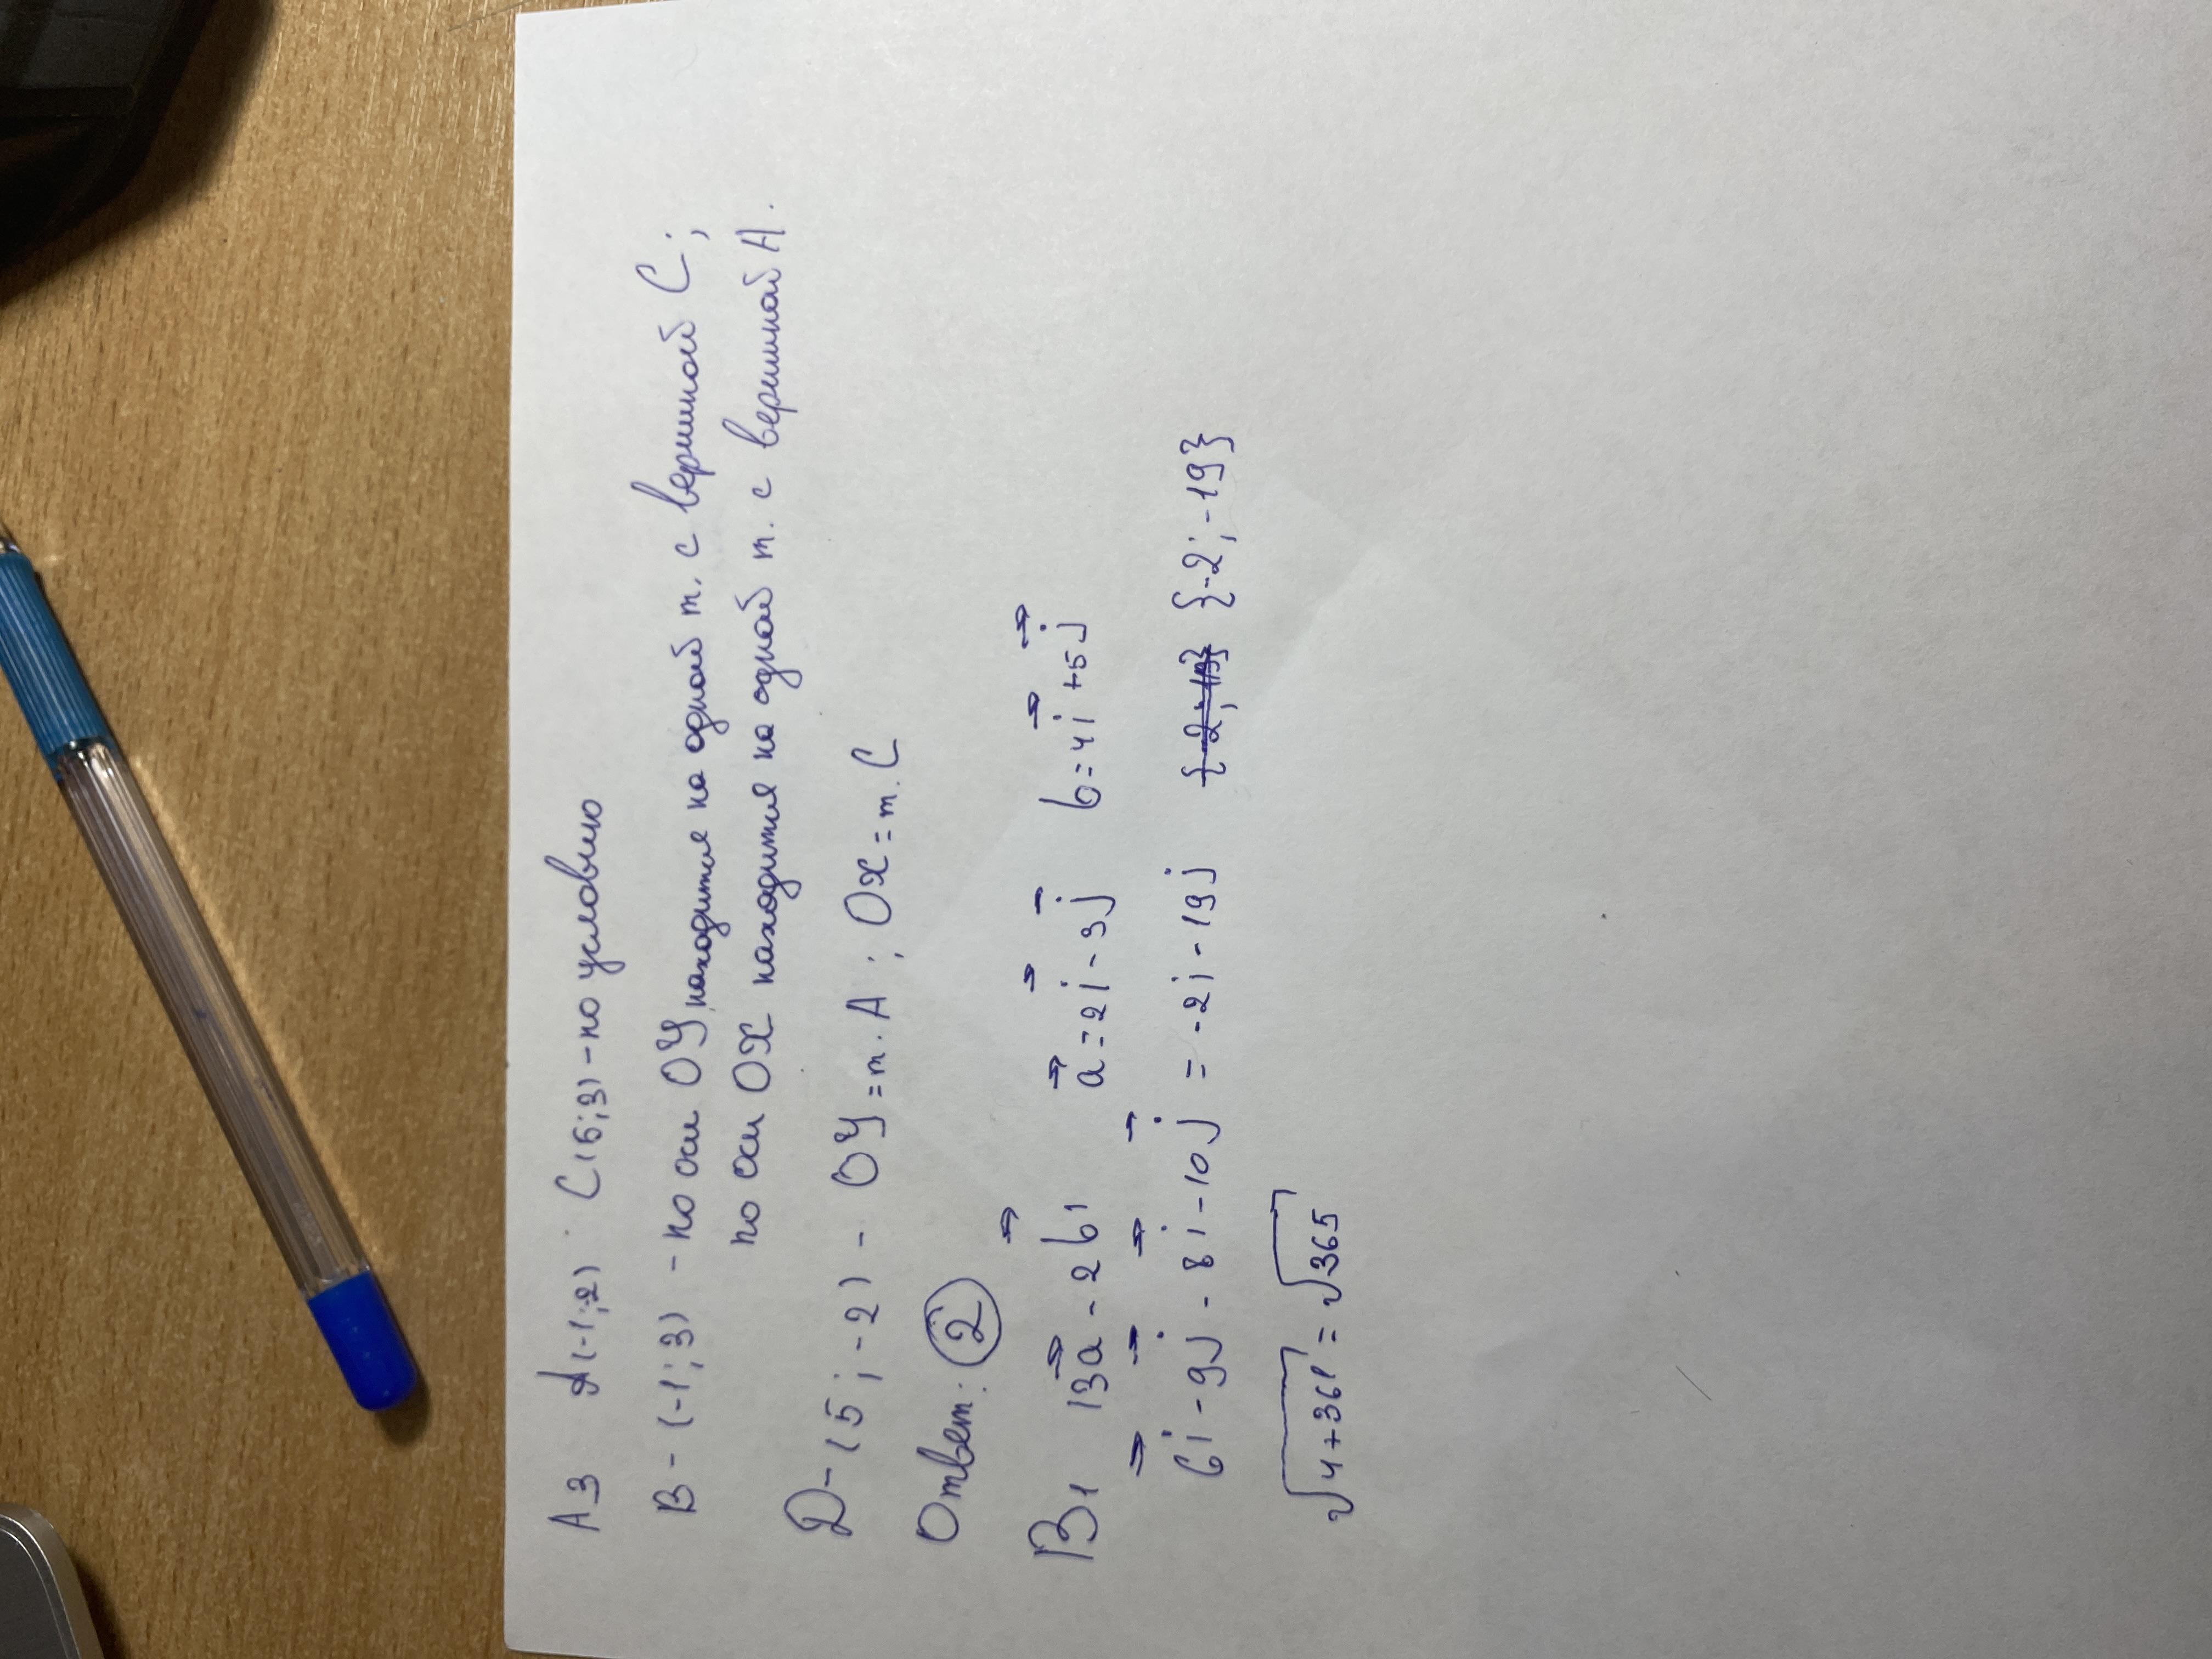 А3 A(-1;-2) C(5;3) - по условию
В - (-1;3) - по оси ОУ находится на одной т. с вершиной С;
по оси ОХ находится на одной т. с вершиной А.
D - (5;-2) - ОУ = т. А; ОХ = т. С
Ответ: ②
В1 |3a⃗ - 2b⃗| a⃗ = 2i⃗ - 3j⃗ b = 4i⃗ + 5j⃗
6i⃗ - 9j⃗ - 8i⃗ - 10j⃗ = -2i - 19j {-2;-19} {-2;-19}
√4+361 = √365